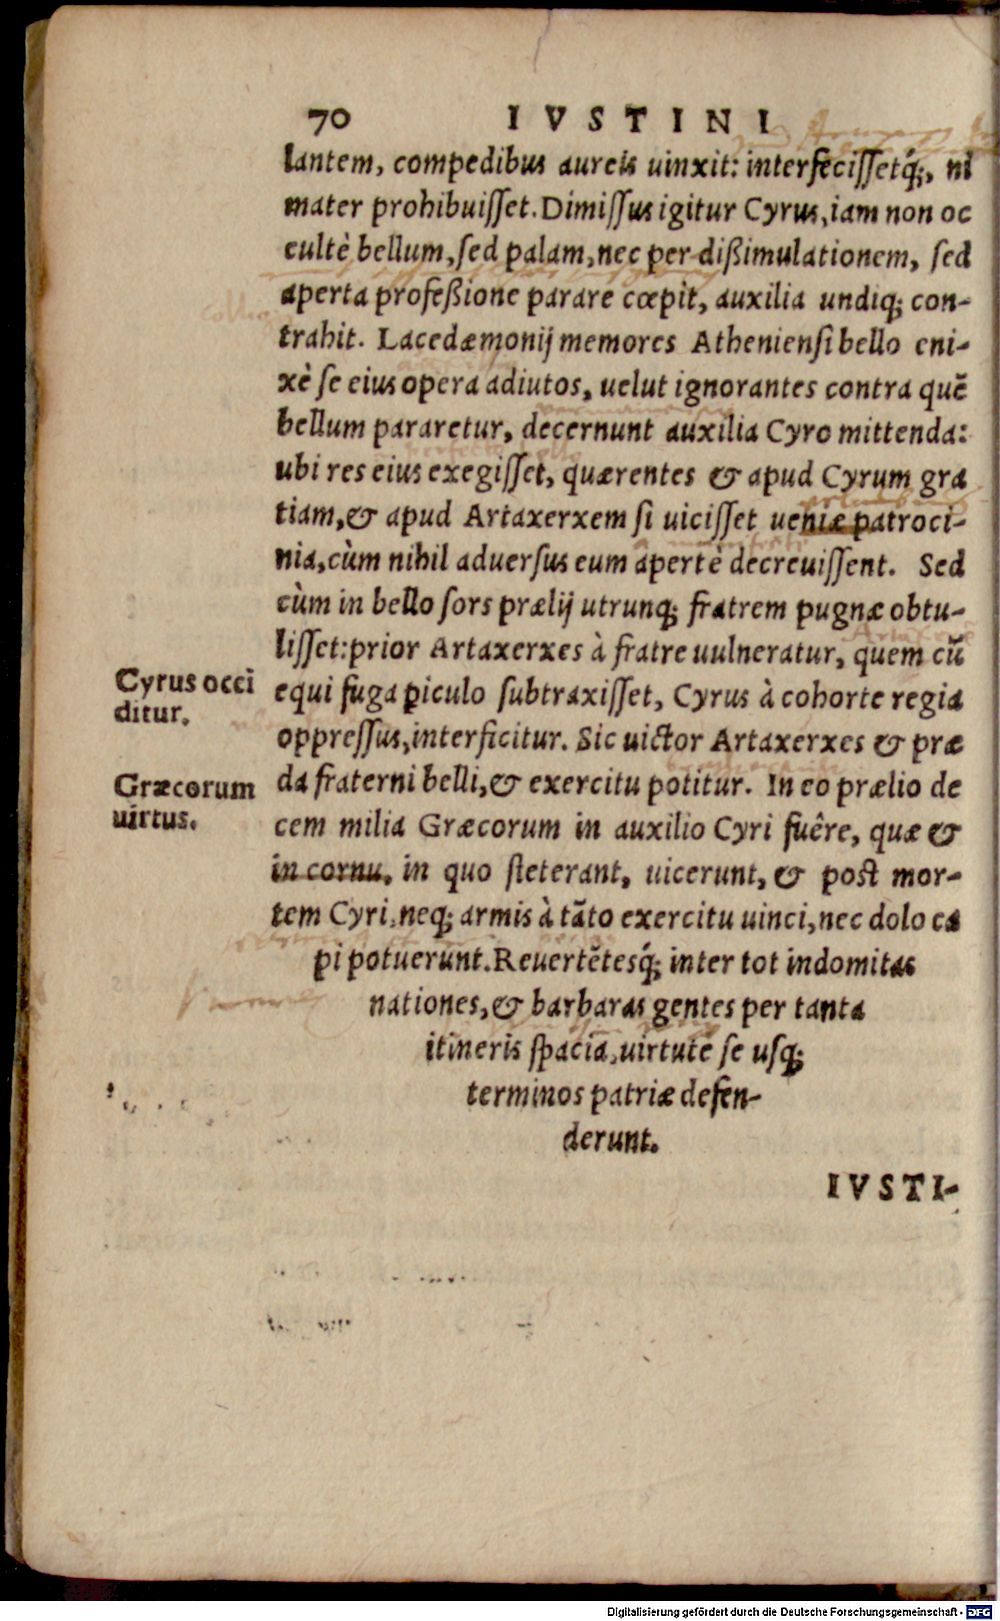 70 IVSTINI
lantem, compedibus aureis uinxit: interfecissetq́;, ni
mater prohibuisset. Dimissus igitur Cyrus, iam non oc
cultè bellum, sed palam, nec per dißimulationem, sed
aperta profeßione parare cœpit, auxilia undiq; con-
trahit. Lacedæmonij memores Atheniensi bello eni-
xè se eius opera adiutos, uelut ignorantes contra quē
bellum pararetur, decernunt auxilia Cyro mittenda:
ubi res eius exegisset, quærentes & apud Cyrum gra
tiam, & apud Artaxerxem si uicisset ueniæ patroci-
nia, cùm nihil aduersus eum apertè decreuissent. Sed
cùm in bello sors prælij utrunq; fratrem pugnæ obtu-
lisset: prior Artaxerxes à fratre uulneratur, quem cū
Cyrus occi
ditur.
equi fuga ꝑiculo subtraxisset, Cyrus à cohorte regia
oppressus, interficitur. Sic uictor Artaxerxes & præ
Græcorum
uirtus.
da fraterni belli, & exercitu potitur. In eo prælio de
cem milia Græcorum in auxilio Cyri fuêre, quæ &
in cornu, in quo steterant, uicerunt, & post mor-
tem Cyri, neq; armis à tāto exercitu uinci, nec dolo ca
pi potuerunt. Reuertētesq́; inter tot indomitas
nationes, & barbaras gentes per tanta
itineris spacia, uirtute se usq;
terminos patriæ defen-
derunt.
IVSTI-
Digitalisierung gefördert durch die Deutsche Forschungsgemeinschaft - DFG